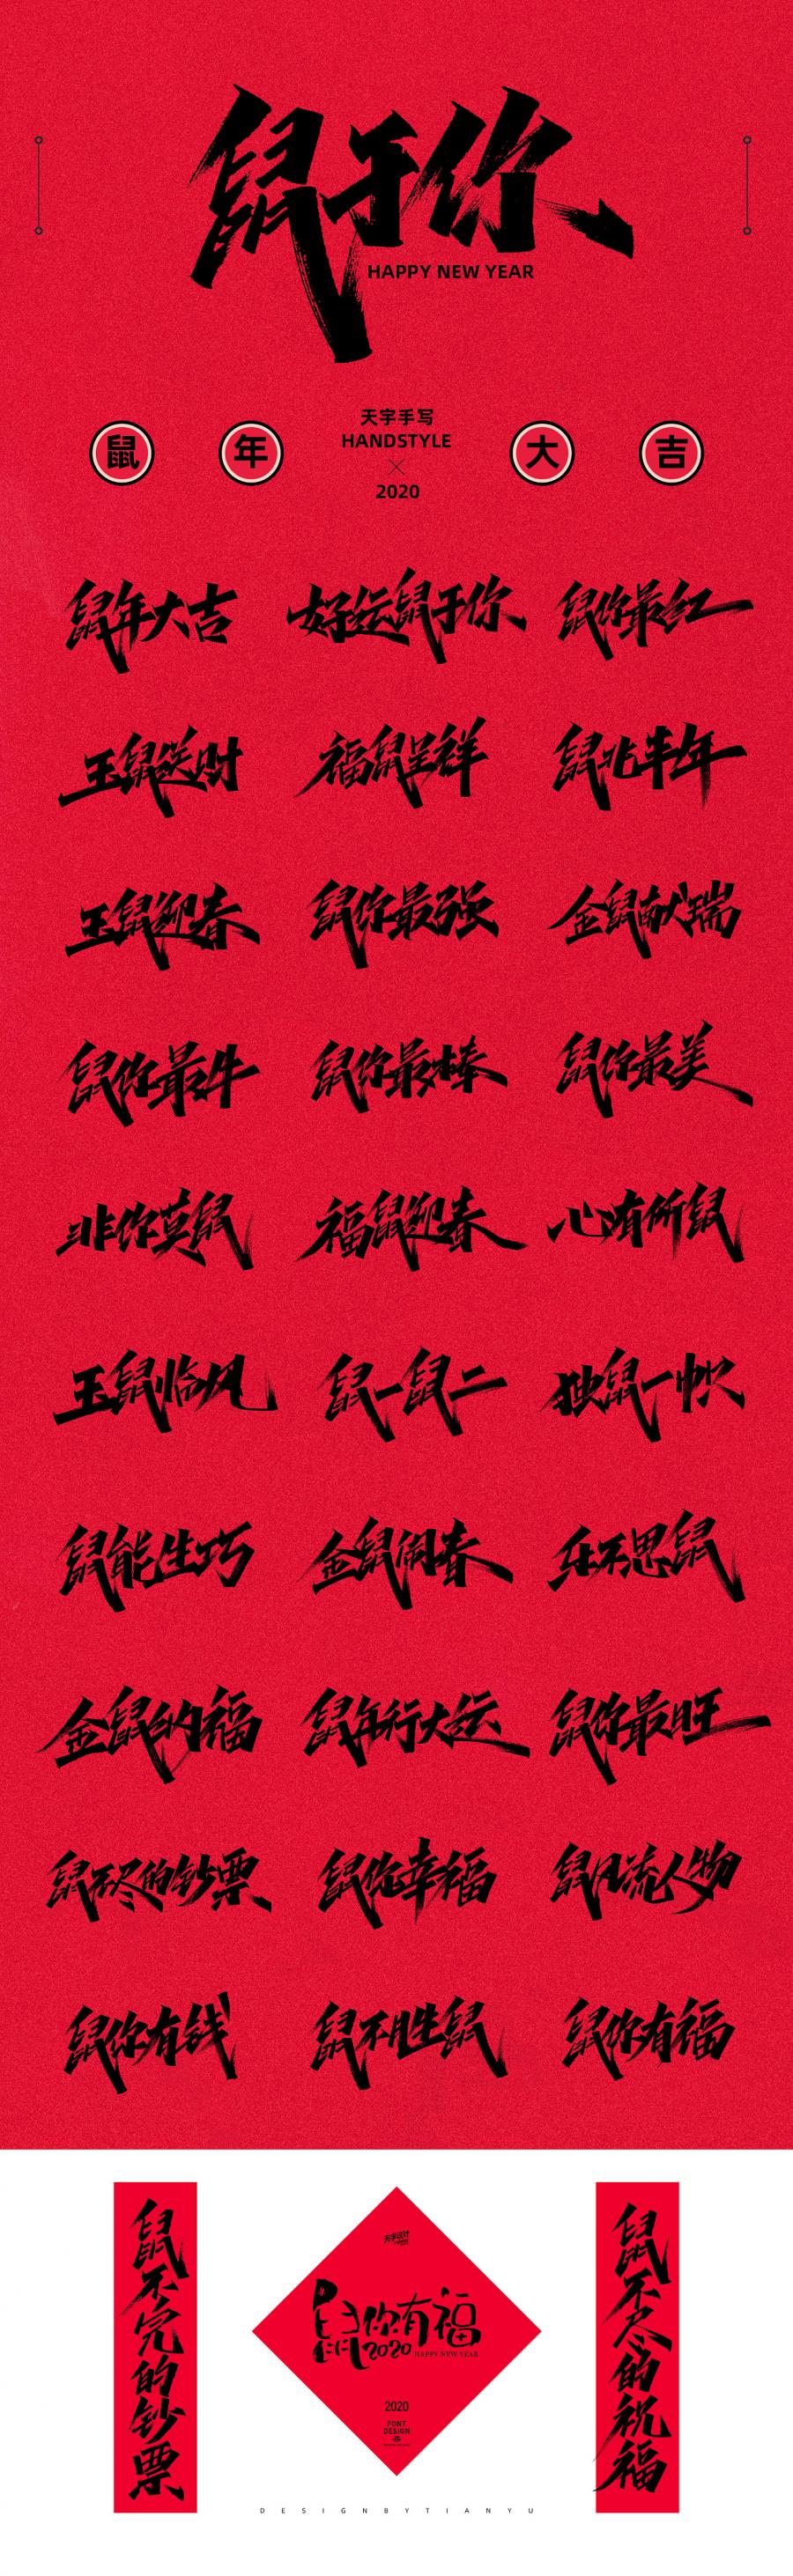 鼠于你
HAPPY NEW YEAR
天宇手写
HANDSTYLE
鼠 年 大 吉
2020
鼠年大吉 好运鼠于你 鼠你最红
玉鼠送财 福鼠呈祥 鼠兆丰年
玉鼠迎春 鼠你最强 金鼠献瑞
鼠你最牛 鼠你最棒 鼠你最美
非你莫鼠 福鼠迎春 心有所鼠
玉鼠临风 鼠一鼠二 独鼠一帜
鼠能生巧 金鼠闹春 乐不思鼠
金鼠纳福 鼠年行大运 鼠你最旺
鼠不尽的钞票 鼠你幸福 鼠风流人物
鼠你有钱 鼠不胜鼠 鼠你有福
鼠不完的钞票
天宇设计
鼠你有福
2020 HAPPY NEW YEAR
2020
FONT
DESIGN
鼠不尽的祝福
DESIGNBYTIANYU